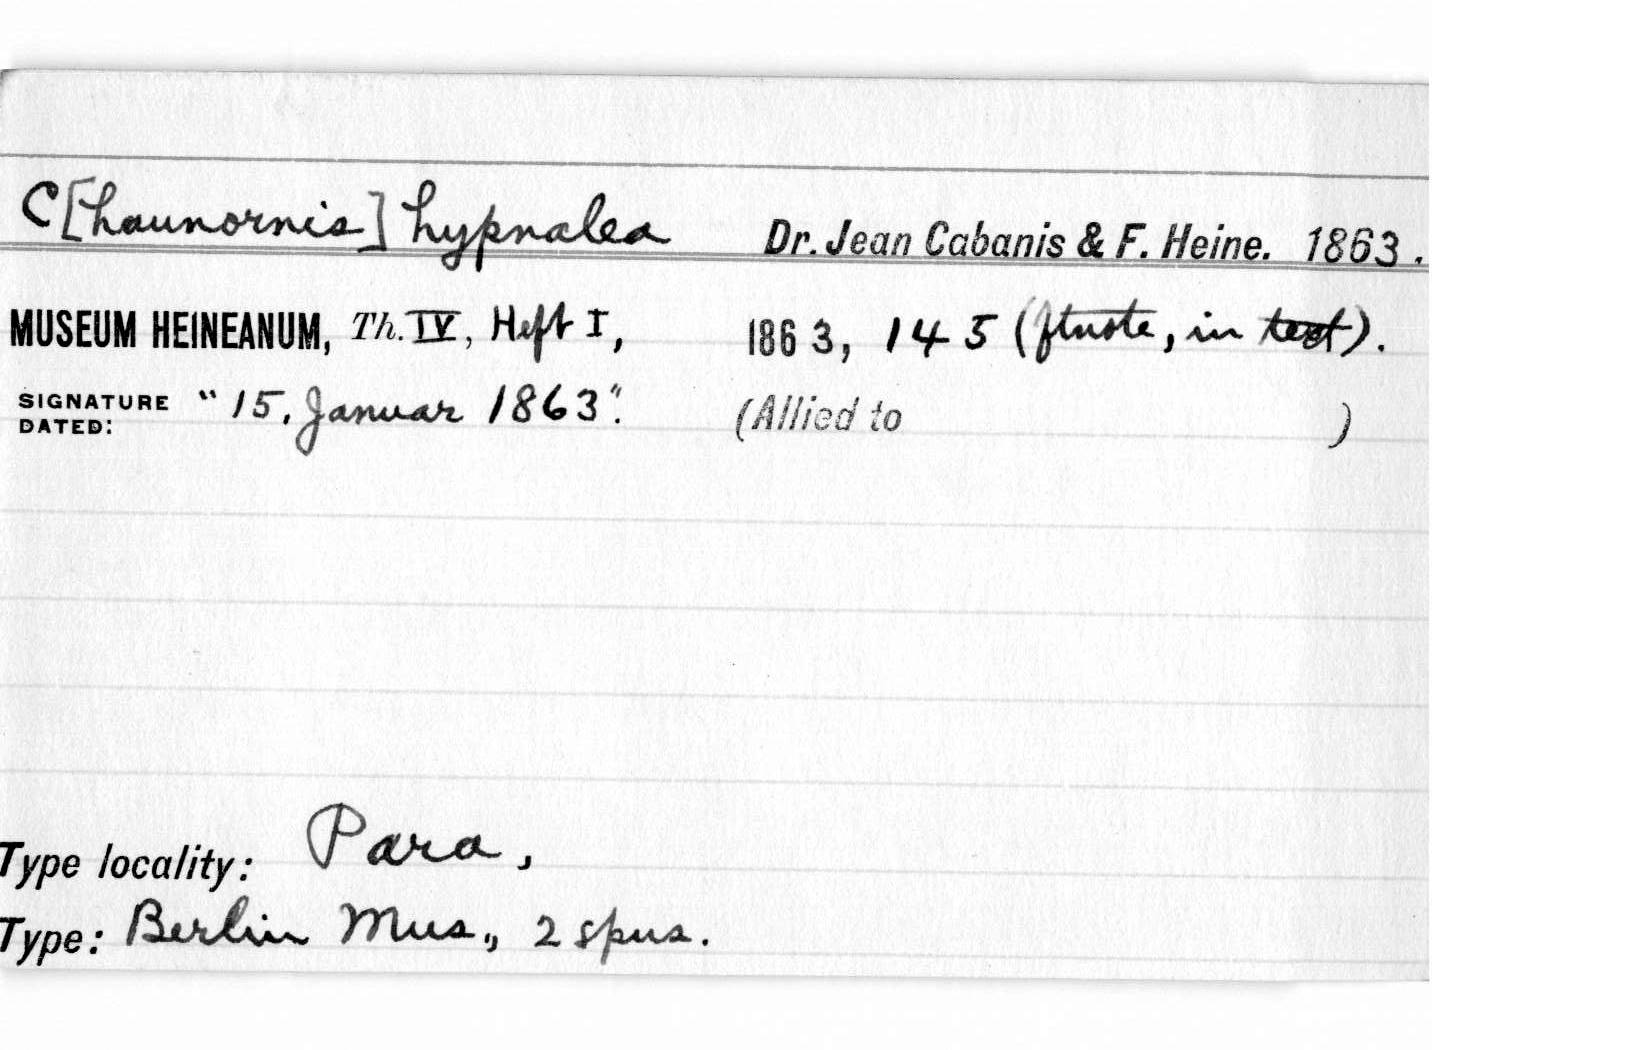 C[haunornis] hypnalea Dr. Jean Cabanis & F. Heine. 1863.
MUSEUM HEINEANUM, Th. IV, Heft I, 1863, 145 (ftnote, in text).
SIGNATURE DATED: "15. Januar 1863". (Allied to )
Type locality: Para,
Type: Berlin Mus., 2 spns.